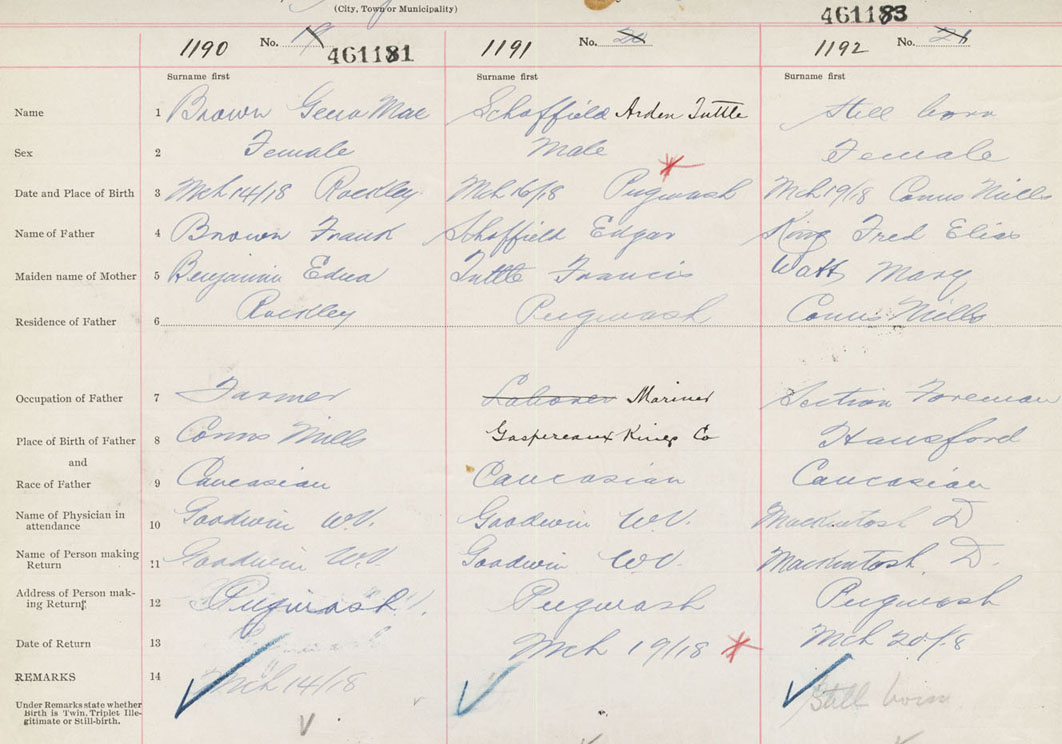 (City, Town or Municipality)
461183
1190 No. 19 461181 1191 No. 20 1192 No. 21
Surname first Surname first Surname first
Name 1 Brown Gena Mae Schoffield Arden Tuttle Still born
Sex 2 Female Male Female
Date and Place of Birth 3 Mch 14/18 Rockley Mch 16/18 Pugwash Mch 19/18 Conns Mills
Name of Father 4 Brown Frank Shoffield Edgar King Fred Elias
Maiden name of Mother 5 Benjamin Edna Tuttle Francis Watt Mary
Residence of Father 6 Rockley Pugwash Conns Mills
Occupation of Father 7 Farmer Laborer Mariner Section Foreman
Place of Birth of Father 8 Conns Mills Gaspereaux Kings Co Hansford
and
Race of Father 9 Caucasian Caucasian Caucasian
Name of Physician in
attendance 10 Goodwin W.V. Goodwin W.V. Mackintosh D
Name of Person making
Return 11 Goodwin W.V. Goodwin W.V. Mackintosh. D.
Address of Person mak-
ing Return 12 Pugwash Pugwash Pugwash
Date of Return 13 Mch 19/18 Mch 20/18
REMARKS 14 Mch 14/18 Still born
Under Remarks state whether
Birth is Twin, Triplet Ille-
gitimate or Still-birth.